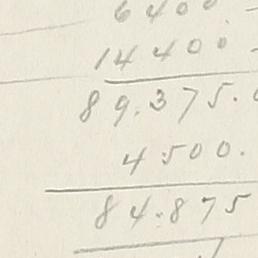 6400
14400
89.375.
4500.
84.875